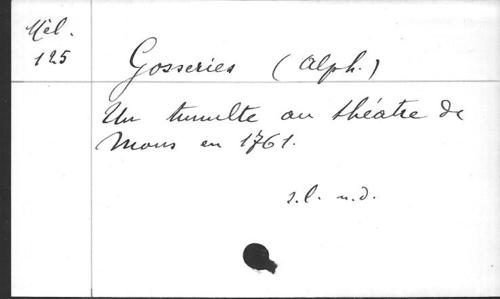 Mél.
125
Gosseries (Alph.)
Un tumulte au théatre de
Mons en 1761.
s.l. n.d.